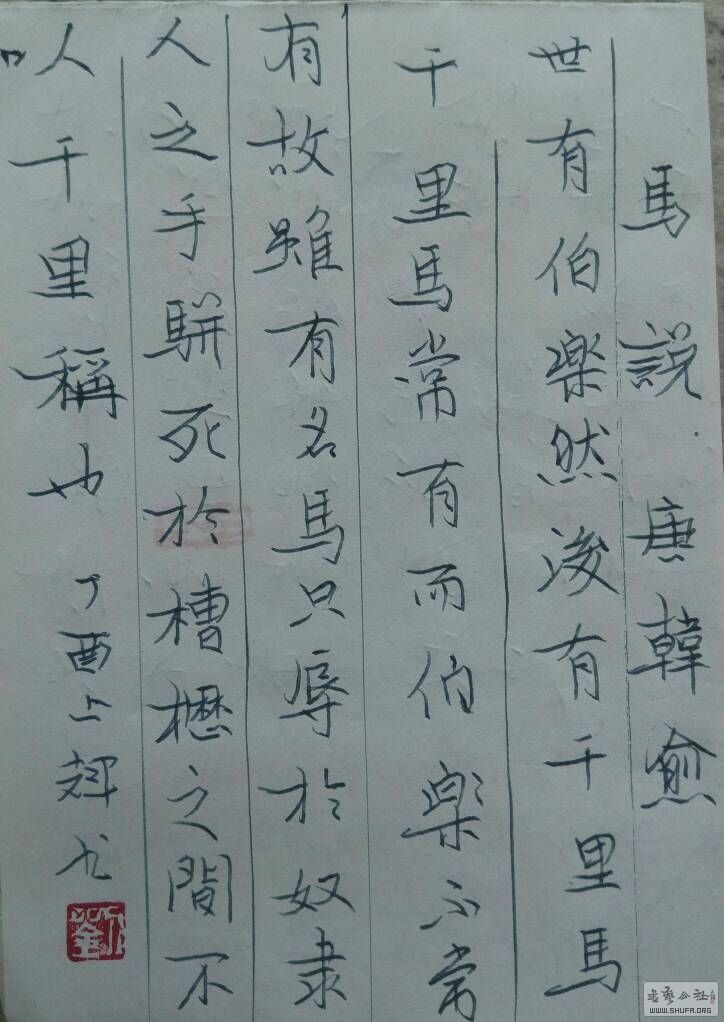 馬說 唐韓愈
世有伯楽然後有千里馬
千里馬常有而伯楽不常
有故雖有名馬只辱於奴隶
人之手駢死於槽櫪之間不
以千里稱也 丁酉上輝书
劉
书艺公社
WWW.SHUFA.ORG